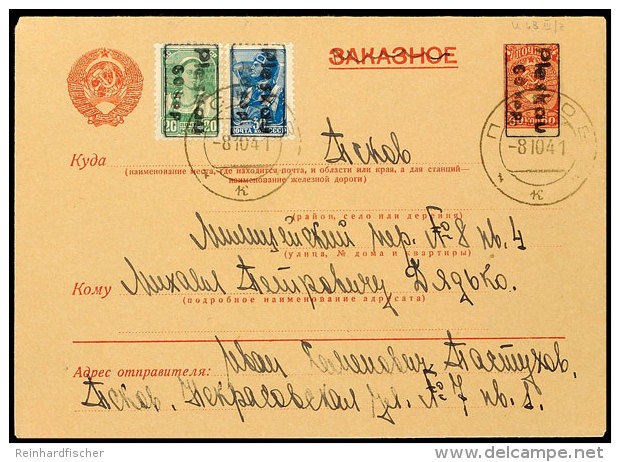 U 43 III/2
ЗАКАЗНОЕ
20 20
ПОЧТА СССР
Pleskau
60 коп
Pleskau
60 коп
Pleskau
60 коп
-8 10 41
-8 10 41
к
к
Куда Псков
(наименование места, где находится почта, и области или края, а для станций—
наименование железной дороги)
(район, село или деревня)
Милицейский пер. № 8 кв. 4
(улица, № дома и квартиры)
Кому Михаил Петрович Дядько.
(подробное наименование адресата)
Адрес отправителя: Иван Семенович Пастухов.
Псков. Некрасовская ул. № 7 кв. 5.
Reinhardfischer
delcampe.net